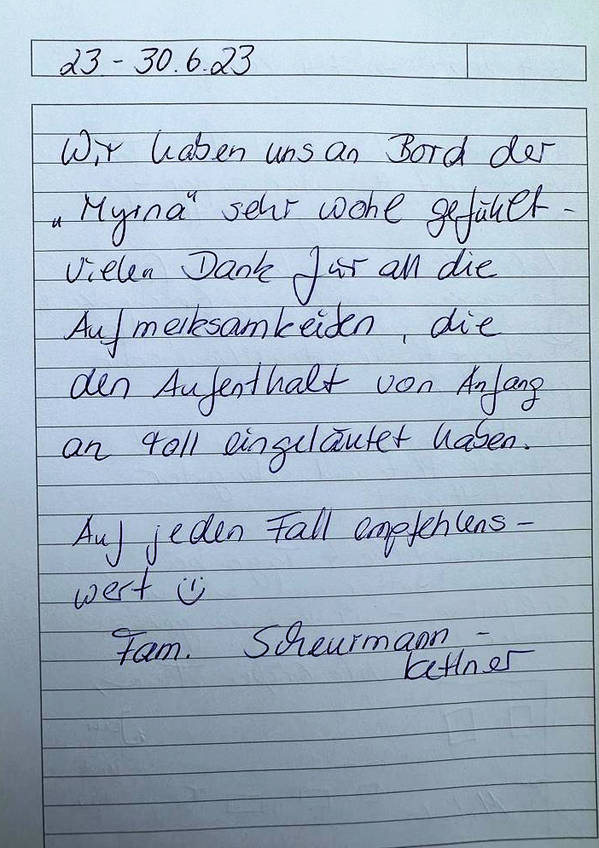 23 - 30.6.23
Wir haben uns an Bord der
„Myrna" sehr wohl gefühlt -
Vielen Dank für all die
Aufmerksamkeiten, die
den Aufenthalt von Anfang
an toll eingeläutet haben.
Auf jeden Fall empfehlens-
wert ☺
Fam. Scheurmann -
Kettner